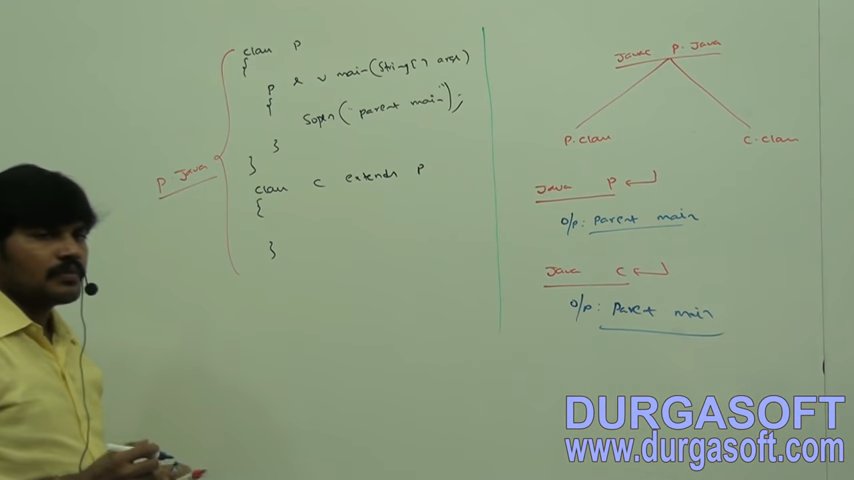 class P
{
P s v main(String[] args)
{
Sopln("parent main");
}
}
P.Java
class C extends P
{
}
Javac P.Java
P.class C.class
Java P
O/P: Parent main
Java C
O/P: Parent main
DURGASOFT
www.durgasoft.com